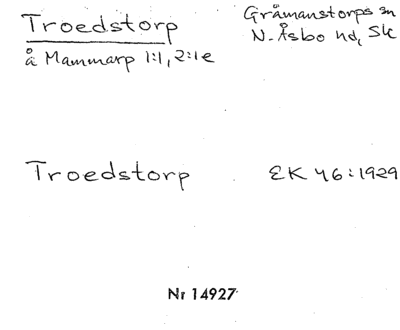 Troedstorp
Gråmanstorps sn
N. Åsbo hd, Sk
å Mammarp 1:1, 2:1 e
Troedstorp
EK 46:1929
Nr 14927